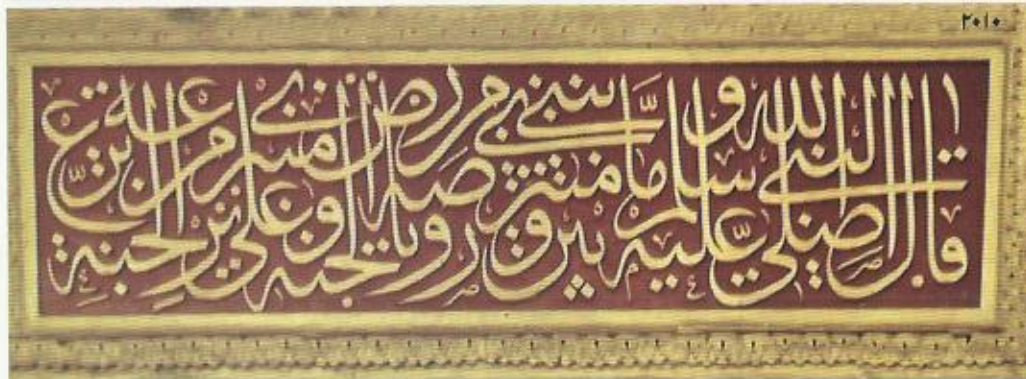 ٢٠١٠
قال النبي صلى الله عليه وسلم ما بين بيتي ومنبري روضة من رياض الجنة وان منبري على ترعة من ترع الجنة